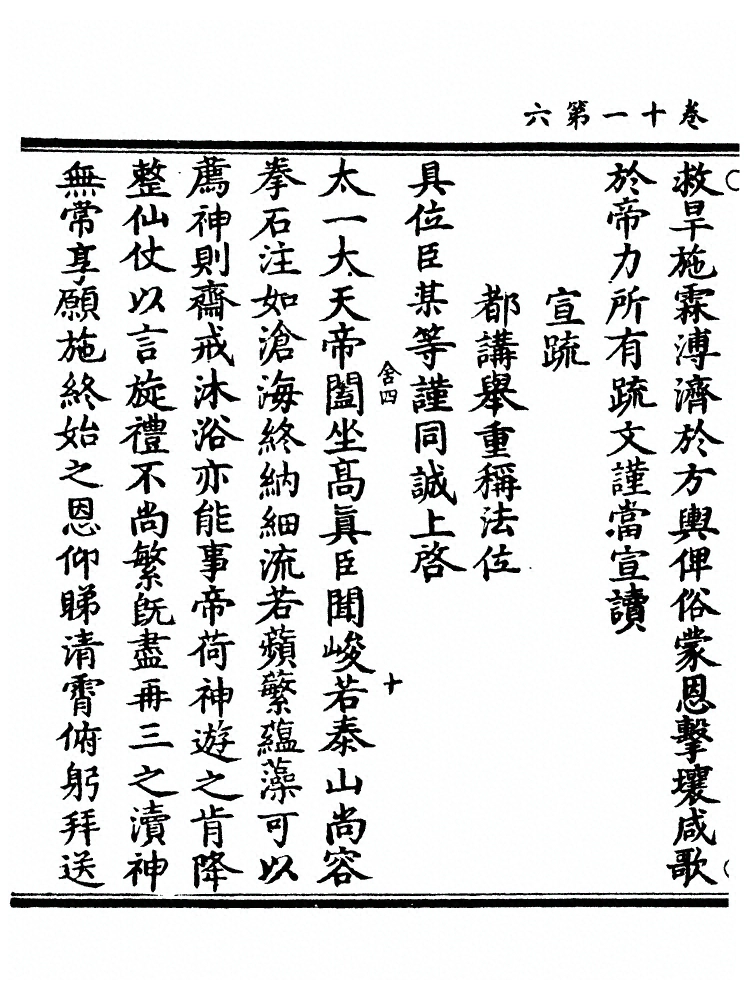 六第一十卷
救旱施霖溥濟於方輿俾俗蒙恩擊壤咸歌
於帝力所有疏文謹當宣讀
宣疏
都講舉重稱法位
具位臣某等謹同誠上啓
舍四
十
太一大天帝闔坐高眞臣聞峻若泰山尚容
拳石注如滄海終納細流若蘋蘩蘊藻可以
薦神則齋戒沐浴亦能事帝荷神遊之肯降
整仙仗以言旋禮不尚繁旣盡再三之瀆神
無常享願施終始之恩仰睇清霄俯躬拜送